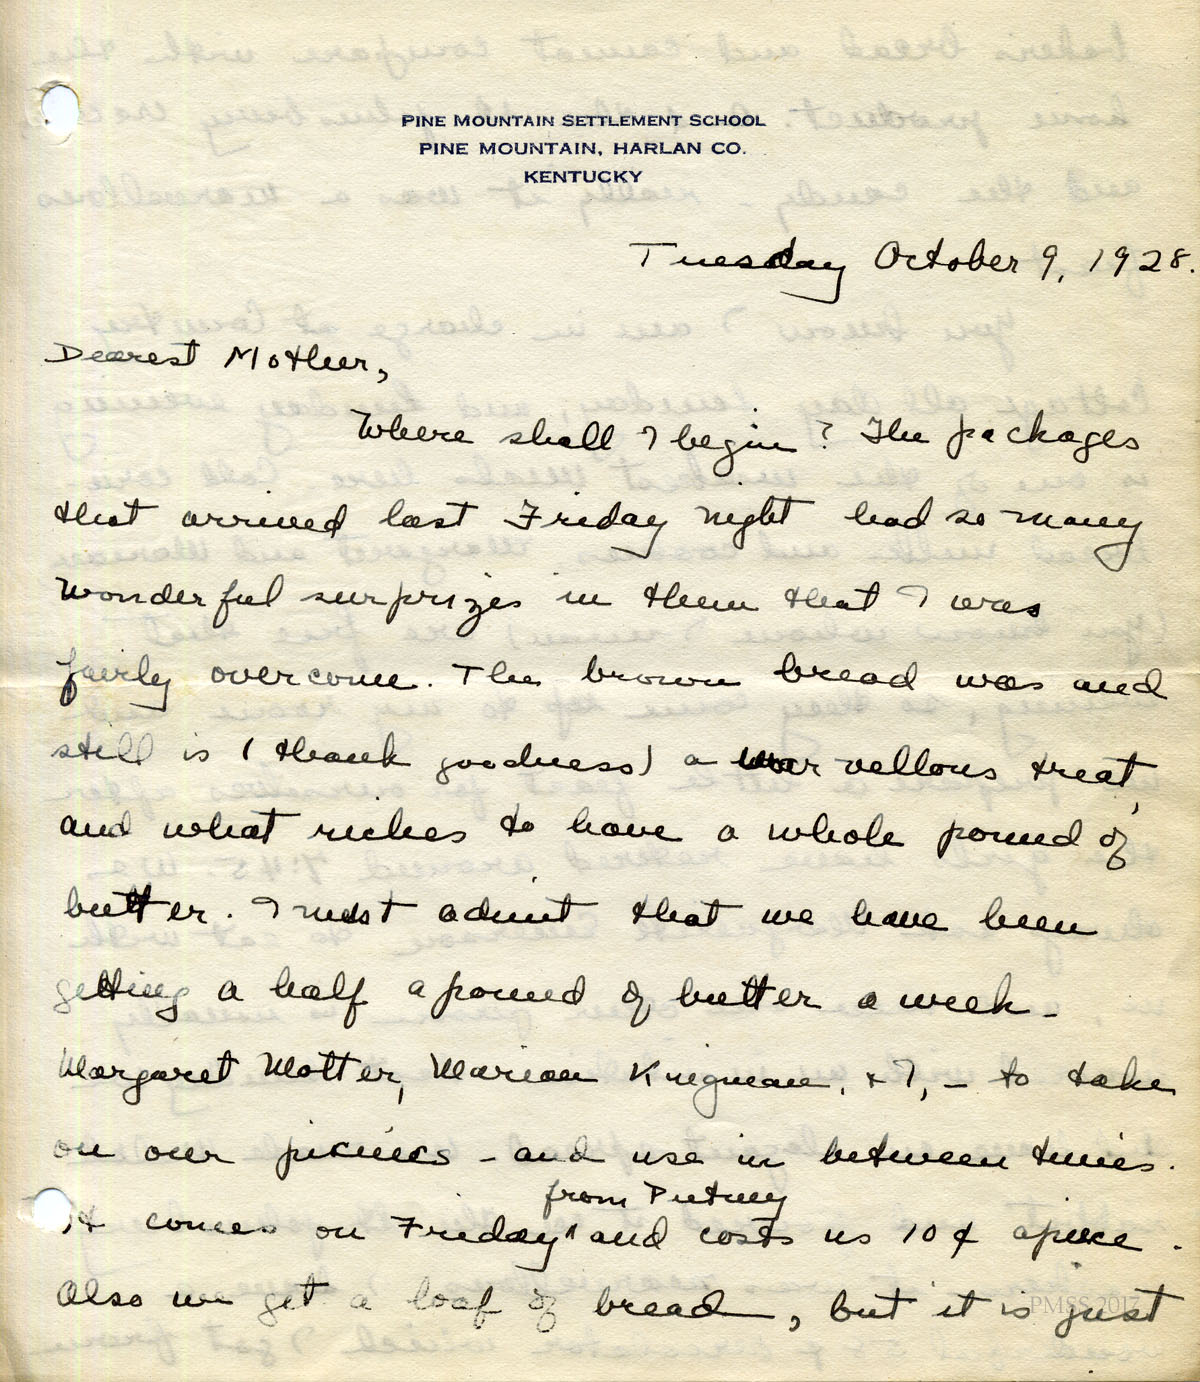 PINE MOUNTAIN SETTLEMENT SCHOOL
PINE MOUNTAIN, HARLAN CO.
KENTUCKY
Tuesday October 9, 1928.
Dearest Mother,
Where shall I begin? The packages
that arrived last Friday night had so many
wonderful surprizes in them that I was
fairly overcome. The brown bread was and
still is (thank goodness) a marvellous treat,
and what riches to have a whole pound of
butter. I must admit that we have been
getting a half a pound of butter a week -
Margaret Motter, Marian Kingman, & I, - to take
on our picnics - and use in between times.
from Putney
It comes on Friday ^ and costs us 10¢ apiece.
Also we get a loaf of bread, but it is just
PMSS 2017